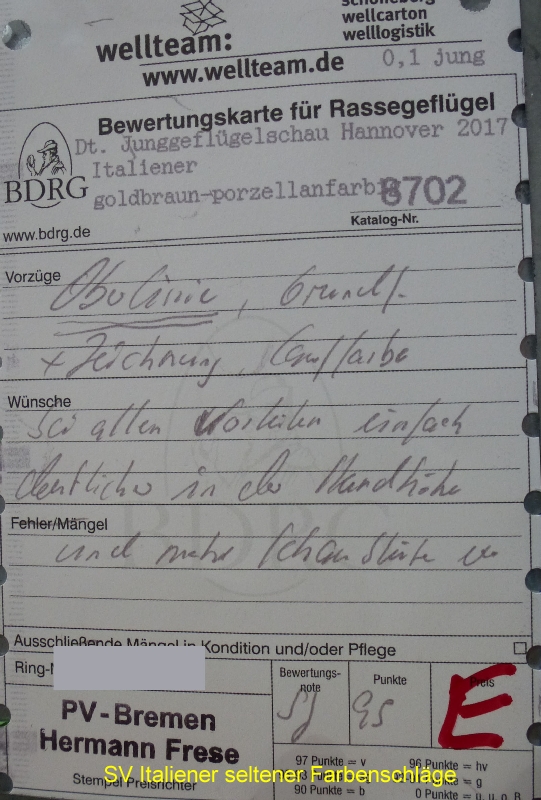 wellcarton
welllogistik
wellteam:
www.wellteam.de
0,1 jung
Bewertungskarte für Rassegeflügel
Dt. Junggeflügelschau Hannover 2017
Italiener
goldbraun-porzellanfarbig
8702
BDRG
Katalog-Nr.
www.bdrg.de
Vorzüge
Oberlinie, Grundf.
+ Zeichnung, Lauffarbe
Wünsche
bei allen Vorteilen einfach
deutlicher in der Standhöhe
Fehler/Mängel
und mehr
Ausschließende Mängel in Kondition und/oder Pflege
Ring-
Bewertungs-
note
Punkte
Preis
sg
95
E
PV-Bremen
Hermann Frese
Stempel Preisrichter
97 Punkte = v
96 Punkte = hv
= g
90 Punkte = b
0 Punkte =
SV Italiener seltener Farbenschläge